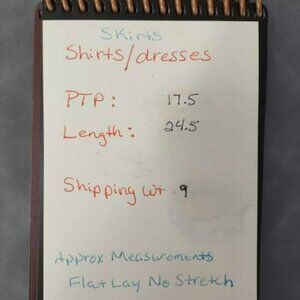 Skirts
Shirts/dresses
PTP: 17.5
Length: 24.5
Shipping wt 9
Approx Measurements
Flat Lay No Stretch